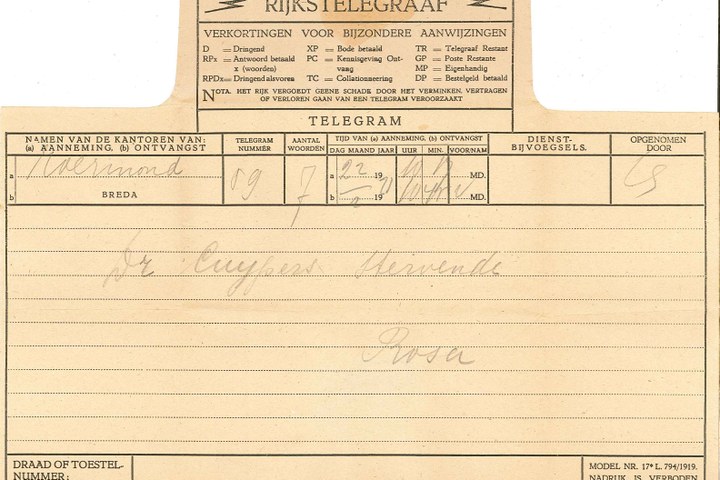 RIJKSTELEGRAAF
VERKORTINGEN VOOR BIJZONDERE AANWIJZINGEN
D = Dringend XP = Bode betaald TR = Telegraaf Restant
RPx = Antwoord betaald PC = Kennisgeving Ont- GP = Poste Restante
x (woorden) vangst MP = Eigenhandig
RPDx= Dringend alsvoren TC = Collationneering DP = Bestelgeld betaald
NOTA. HET RIJK VERGOEDT GEENE SCHADE DOOR HET VERMINKEN, VERTRAGEN
OF VERLOREN GAAN VAN EEN TELEGRAM VEROORZAAKT
TELEGRAM
NAMEN VAN DE KANTOREN VAN: TELEGRAM AANTAL TIJD VAN (a) AANNEMING, (b) ONTVANGST DIENST- OPGENOMEN
(a) AANNEMING, (b) ONTVANGST NUMMER WOORDEN DAG MAAND JAAR UUR MIN. VOORNAM BIJVOEGSELS. DOOR
a Roermond 59 7 a 22 19 MD.
b BREDA b 2 19 MD.
Dr Cuypers stervende
Rosa
DRAAD OF TOESTEL-
NUMMER:
MODEL NR. 17* L. 794/1919.
NADRUK IS VERBODEN